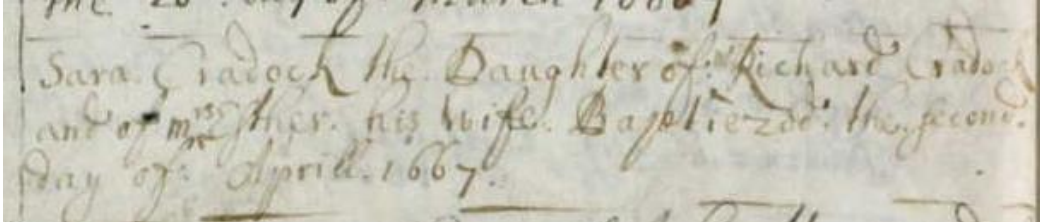 the 20 day of March 1666/7
Sara Cradock the Daughter of mr Richard Cradock
and of mrs Esther his Wife Baptiezed the second
day of Aprill 1667